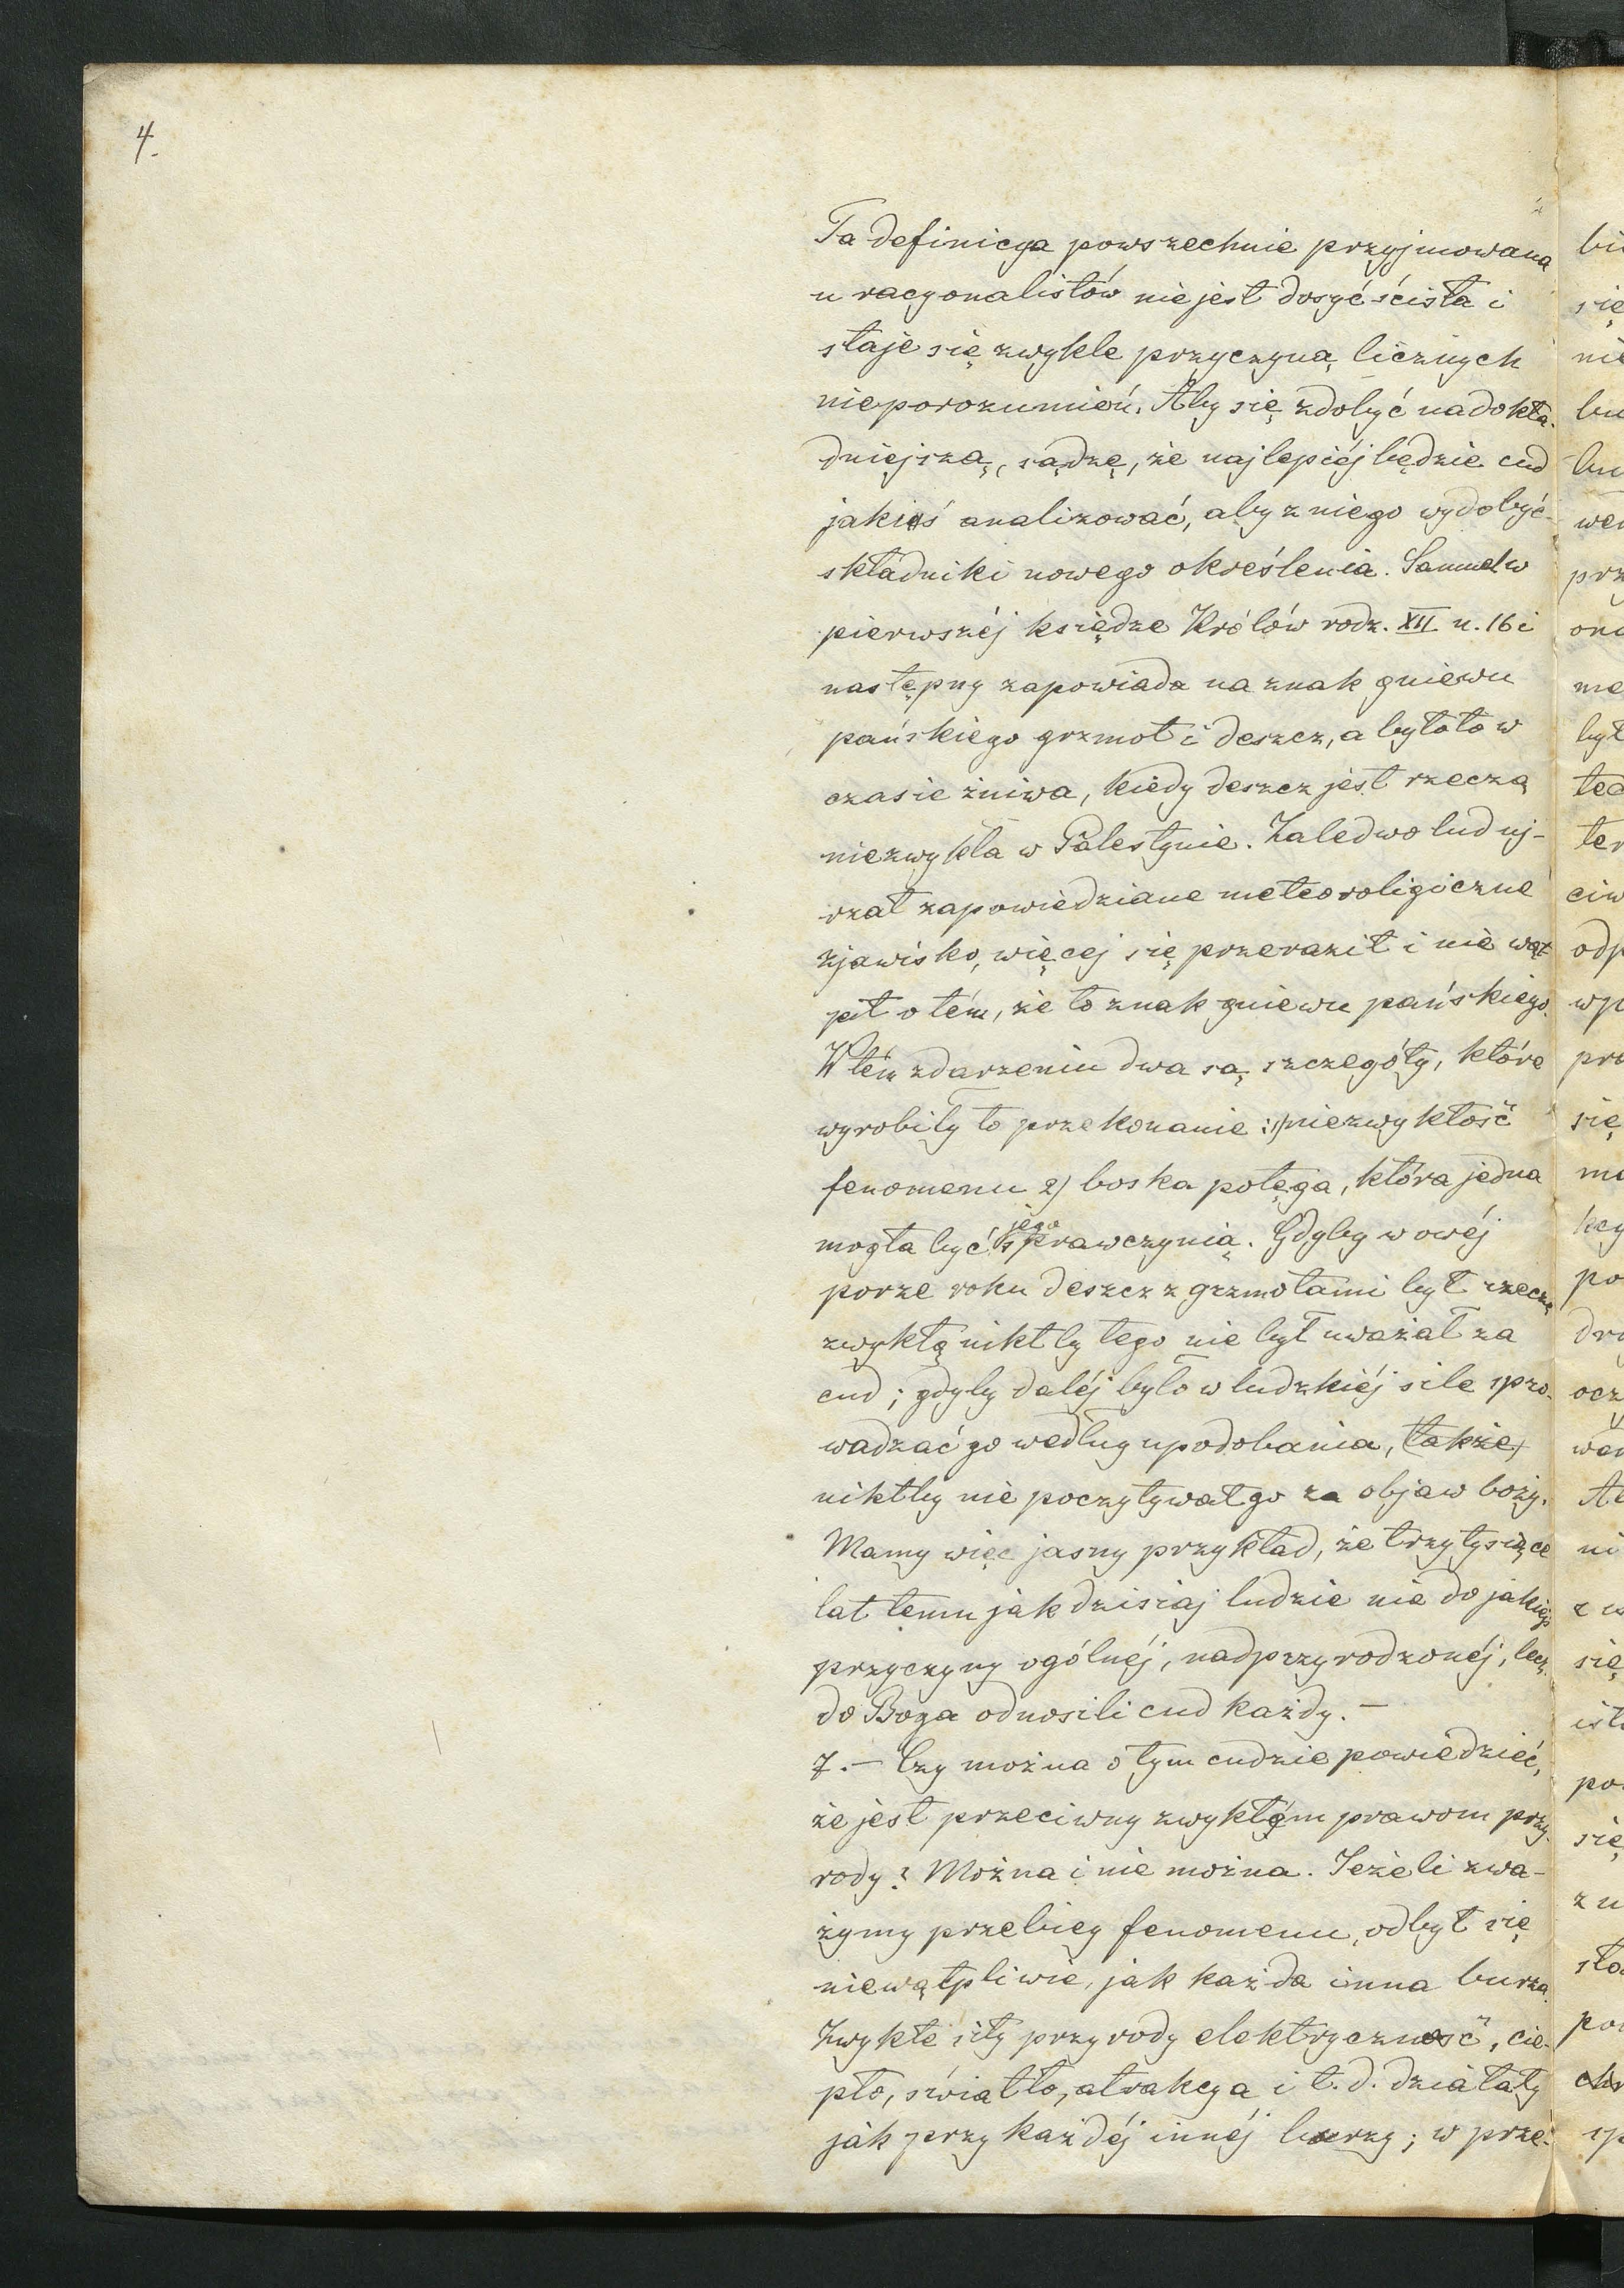 4.
Ta definicya powszechnie przyjmowana
u racyonalistów nie jest dosyć ścisła i
staje się zwykle przyczyną licznych
nieporozumień. Aby się zdobyć na dokła-
dniejszą, sądzę, że najlepiéj będzie cud
jakiś analizować, aby z niego wydobyć
składniki nowego określenia. Samuel w
pierwszéj księdze Królów rodz. XII w. 16 i
następny zapowiada na znak gniewu
pańskiego grzmot i deszcz, a było to w
czasie żniwa, kiedy deszcz jest rzeczą
niezwykłą w Palestynie. Zaledwo lud uj-
rzał zapowiedziane meteoroligiczne
zjawisko, więcej się przeraził i nie wąt-
pił o tém, że to znak gniewu pańskiego.
W tém zdarzeniu dwa są szczegóły, które
wyrobiły to przekonanie: 1) niezwykłość
fenomenu 2) boska potęga, która jedna
mogła być jego sprawczynią. Gdyby w owéj
porze roku deszcz z grzmotami był rzeczą
zwykłą nikt by tego nie był uważał za
cud; gdyby daléj było w ludzkiéj sile spro-
wadzać go według upodobania, (także)
niktby nie poczytywał go za objaw boży.
Mamy więc jasny przykład, że trzy tysiące
lat temu jak dzisiaj ludzie nie do jakiejś
przyczyny ogólnéj, nadprzyrodzonéj, lecz
do Boga odnosili cud każdy. —
7. — Czy można o tym cudzie powiedzieć,
że jest przeciwny zwykłym prawom przy-
rody? Można i nie można. Jeżeli zwa-
żymy przebieg fenomenu, odbył się
niewątpliwie, jak każda inna burza.
Zwykłe siły przyrody elektryczność, cie-
pło, światło, atrakcya i t. d. działały
jak przy każdéj innéj burzy; w prze-